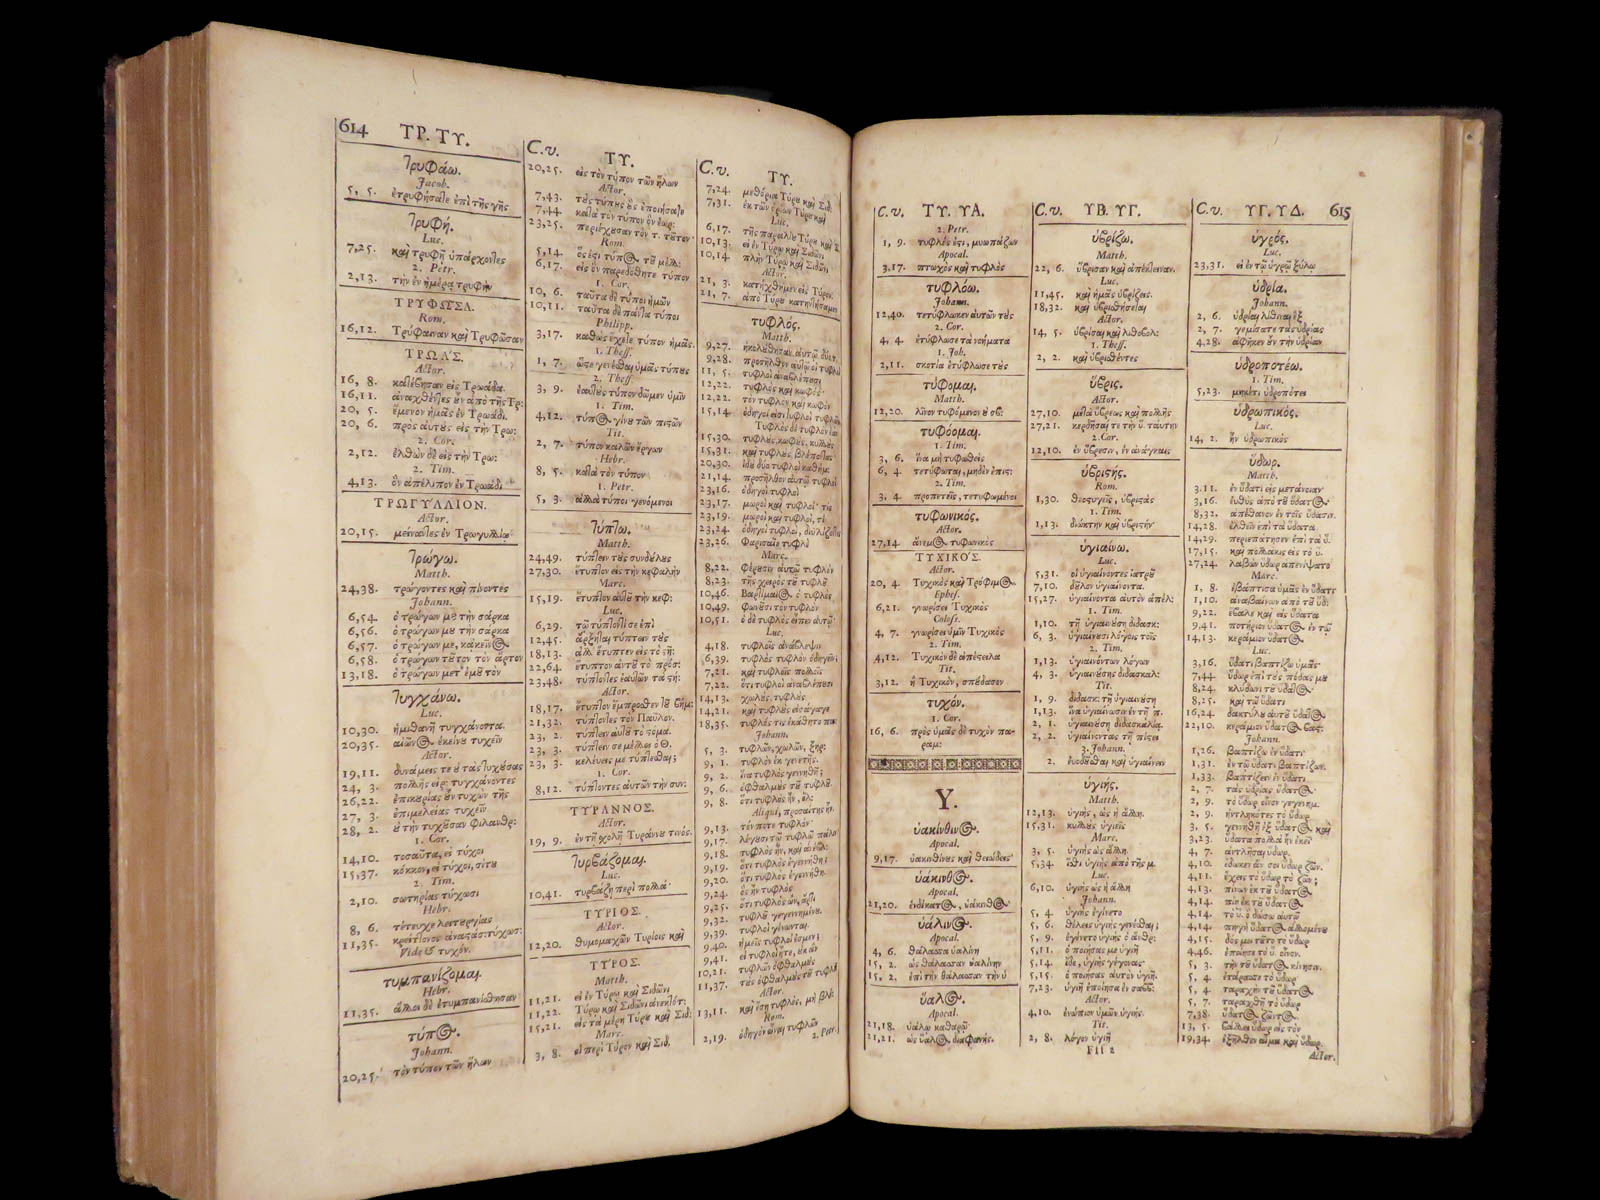 614 ΤΡ. ΤΥ.
Τρυφάω.
Jacob.
5, 5. ἐτρυφήσατε ἐπὶ τῆς γῆς
Τρυφή.
Luc.
7,25. καὶ τρυφῇ ὑπάρχοντες
2. Petr.
2,13. τὴν ἐν ἡμέρᾳ τρυφὴν
ΤΡΥΦΩΣΑ.
Rom.
16,12. Τρύφαιναν καὶ Τρυφῶσαν
ΤΡΩΑ´Σ.
Actor.
16, 8. κατέβησαν εἰς Τρωάδα.
16,11. ἀναχθέντες ȣ̓ν ἀπὸ τῆς Τρ:
20, 5. ἔμενον ἡμᾶς ἐν Τρωάδι.
20, 6. πρὸς αὐτȣ̀ς εἰς τὴν Τρω:
2. Cor.
2,12. ἐλθὼν δὲ εἰς τὴν Τρω:
2. Tim.
4,13. ὃν ἀπέλιπον ἐν Τρωάδι
ΤΡΩΓΥΛΛΙΟΝ.
Actor.
20,15. μείναντες ἐν Τρωγυλλίῳ
Τρώγω.
Matth.
24,38. τρώγοντες καὶ πίνοντες
Johann.
6,54. ὁ τρώγων μȣ τὴν σάρκα
6,56. ὁ τρώγων μȣ τὴν σάρκα
6,57. ὁ τρώγων με, κἀκεῖνος
6,58. ὁ τρώγων τȣ͂τον τὸν ἄρτον
13,18. ὁ τρώγων μετ' ἐμȣ͂ τὸν
Τυγχάνω.
Luc.
10,30. ἡμιθανῆ τυγχάνοντα.
20,35. αἰῶνος ἐκείνȣ τυχεῖν
Actor.
19,11. δυνάμεις τε ȣ̓ τὰς τυχȣ́σας
24, 3. πολλῆς εἰρ: τυγχάνοντες
26,22. ἐπικȣρίας ȣ̓ν τυχὼν τῆς
27, 3. ἐπιμελείας τυχεῖν
28, 2. ȣ̓ τὴν τυχȣ͂σαν φιλανθρ:
1. Cor.
14,10. τοσαῦτα, εἰ τύχοι
15,37. κόκκον, εἰ τύχοι, σίτȣ
2. Tim.
2,10. σωτηρίας τύχωσι
Hebr.
8, 6. τέτευχε λειτȣργίας
11,35. κρείττονος ἀναστάσ: τύχωσ:
Vide & τυχόν.
τυμπανίζομαι.
Hebr.
11,35. ἄλλοι δὲ ἐτυμπανίσθησαν
τύπος.
Johann.
20,25. τὸν τύπον τῶν ἥλων
C. v. ΤΥ.
20,25. εἰς τὸν τύπον τῶν ἥλων
Actor.
7,43. τȣ̀ς τύπȣς ȣ̔̀ς ἐποιήσατε
7,44 κατὰ τὸν τύπον ὃν ἑωρ:
23,25. περιέχȣσαν τὸν τ. τȣ͂τον·
Rom.
5,14. ὅς ἐστι τύπος τȣ͂ μέλλ:
6,17. εἰς ὃν παρεδόθητε τύπον
1. Cor.
10, 6. ταῦτα δὲ τύποι ἡμῶν
10,11. ταῦτα δὲ πάντα τύποι
Philipp.
3,17. καθὼς ἔχετε τύπον ἡμᾶς.
1. Thess.
1, 7. ὥστε γενέσθαι ὑμᾶς τύπȣς
2. Thess.
3, 9. ἑαυτȣ̀ς τύπον δῶμεν ὑμῖν
1. Tim.
4,12. τύπος γίνȣ τῶν πιστῶν
Tit.
2, 7. τύπον καλῶν ἔργων
Hebr.
8, 5. κατὰ τὸν τύπον
1. Petr.
5, 3. ἀλλὰ τύποι γενόμενοι
Τύπτω.
Matth.
24,49. τύπτειν τȣ̀ς συνδȣ́λȣς
27,30. ἔτυπτον εἰς τὴν κεφαλὴν
Marc.
15,19. ἔτυπτον αὐτȣ͂ τὴν κεφ:
Luc.
6,29. τῷ τύπτοντί σε ἐπὶ
12,45. ἄρξηται τύπτειν τȣ̀ς
18,13. ἀλλ' ἔτυπτεν εἰς τὸ στῆ:
22,64. ἔτυπτον αὐτȣ͂ τὸ πρόσ:
23,48. τύπτοντες ἑαυτῶν τὰ στή:
Actor.
18,17. ἔτυπτον ἔμπροσθεν τȣ͂ βήμ:
21,32. τύπτοντες τὸν Παῦλον.
23, 2. τύπτειν αὐτȣ͂ τὸ στόμα.
23, 3. τύπτειν σε μέλλει ὁ Θ.
23, 3. κελεύεις με τύπτεσθαι;
1. Cor.
8,12. τύπτοντες αὐτῶν τὴν συν:
ΤΥΡΑΝΝΟΣ.
Actor.
19, 9. ἐν τῇ σχολῇ Τυράννȣ τινός.
Τυρβάζομαι.
Luc.
10,41. τυρβάζῃ περὶ πολλά·
ΤΥΡΙΟΣ.
Actor.
12,20. θυμομαχῶν Τυρίοις καὶ
ΤΥΡΟΣ.
Matth.
11,21. εἰ ἐν Τύρῳ καὶ Σιδῶνι
11,22. Τύρῳ καὶ Σιδῶνι ἀνεκτότ:
15,21. εἰς τὰ μέρη Τύρȣ καὶ Σιδ:
Marc.
3, 8. οἱ περὶ Τύρον καὶ Σιδ.
C. v. ΤΥ.
7,24. μεθόρια Τύρȣ καὶ Σιδ:
7,31. ἐκ τῶν ὁρίων Τύρȣ καὶ
Luc.
6,17. τῆς παραλίȣ Τύρȣ καὶ Σ
10,13. εἰ ἐν Τύρῳ καὶ Σιδῶνι
10,14 πλὴν Τύρῳ καὶ Σιδῶνι
Actor.
21, 3. κατήχθημεν εἰς Τύρον.
21, 7. ἀπὸ Τύρȣ κατηντήσαμεν
τυφλός.
Matth.
9,27. ἠκολȣ́θησαν αὐτῷ δύο τ.
9,28. προσῆλθον αὐτῷ οἱ τυφλοὶ
11, 5. τυφλοὶ ἀναβλέπȣσι
12,22. τυφλὸς καὶ κωφός·
12,22. τὸν τυφλὸν καὶ κωφὸν
15,14. ὁδηγοί εἰσι τυφλοὶ τυφλῶν.
Τυφλὸς δὲ τυφλὸν ἐὰν
15,30. τυφλȣ̀ς, κωφȣ̀ς, κυλλȣ̀ς
15,31. καὶ τυφλȣ̀ς βλέποντας
20,30. ἰδȣ̀ δύο τυφλοὶ καθήμ:
21,14. προσῆλθον αὐτῷ τυφλοὶ
23,16. ὁδηγοὶ τυφλοὶ
23,17. μωροὶ καὶ τυφλοί· τίς
23,19. μωροὶ καὶ τυφλοί, τί
23,24. ὁδηγοὶ τυφλοί, διυλίζοντες
23,26. Φαρισαῖε τυφλὲ
Marc.
8,22. φέρȣσιν αὐτῷ τυφλὸν
8,23. τῆς χειρὸς τȣ͂ τυφλȣ͂
10,46. Βαρτίμαιος ὁ τυφλὸς
10,49. φωνȣ͂σι τὸν τυφλὸν
10,51. ὁ δὲ τυφλὸς εἶπεν αὐτῷ·
Luc.
4,18. τυφλοῖς ἀνάβλεψιν
6,39. τυφλὸς τυφλὸν ὁδηγεῖν;
7,21. καὶ τυφλοῖς πολλοῖς
7,22. ὅτι τυφλοὶ ἀναβλέπȣσι
14,13. χωλȣ̀ς, τυφλȣ̀ς
14,21. καὶ τυφλȣ̀ς εἰσάγαγε
18,35. τυφλός τις ἐκάθητο πα:
Johann.
5, 3. τυφλῶν, χωλῶν, ξηρ:
9, 1. τυφλὸν ἐκ γενετῆς.
9, 2. ἵνα τυφλὸς γεννηθῇ;
9, 6. ὀφθαλμȣ̀ς τȣ͂ τυφλȣ͂
9, 8. ὅτι τυφλὸς ἦν, ἔλ:
Aliqui, προσαίτης ἦν
9,13. τόν ποτε τυφλόν·
9,17. λέγȣσι τῷ τυφλῷ πάλιν
9,18. τυφλὸς ἦν, καὶ ἀνέβλ:
9,19. ὅτι τυφλὸς ἐγεννήθη;
9,20. ὅτι τυφλὸς ἐγεννήθη·
9,24. ὃς ἦν τυφλὸς
9,25. ὅτι τυφλὸς ὢν, ἄρτι
9,32. τυφλȣ͂ γεγεννημένȣ.
9,39. τυφλοὶ γένωνται.
9,40. ἡμεῖς τυφλοί ἐσμεν;
9,41. εἰ τυφλοὶ ἦτε, ȣ̓κ ἂν
10,21. τυφλῶν ὀφθαλμȣ̀ς
11,37. τȣ̀ς ὀφθαλμȣ̀ς τȣ͂ τυφλȣ͂
Actor.
13,11. καὶ ἔσῃ τυφλὸς, μὴ βλέ:
Rom.
2,19. ὁδηγὸν εἶναι τυφλῶν
2. Petr.
C. v. ΤΥ. ΥΑ.
2. Petr.
1, 9. τυφλός ἐστι, μυωπάζων
Apocal.
3,17. πτωχὸς καὶ τυφλὸς
τυφλόω.
Johann.
12,40. τετύφλωκεν αὐτῶν τȣ̀ς
2. Cor.
4, 4. ἐτύφλωσε τὰ νοήματα
1. Joh.
2,11. σκοτία ἐτύφλωσε τȣ̀ς
τύφομαι.
Matth.
12,20. λῖνον τυφόμενον ȣ̓ σβ:
τυφόομαι.
1. Tim.
3, 6. ἵνα μὴ τυφωθεὶς
6, 4. τετύφωται, μηδὲν ἐπις:
2. Tim.
3, 4. προπετεῖς, τετυφωμένοι
τυφωνικός.
Actor.
27,14 ἄνεμος τυφωνικὸς
ΤΥΧΙΚΟ´Σ.
Actor.
20, 4. Τυχικὸς καὶ Τρόφιμος.
Ephes.
6,21. γνωρίσει Τυχικὸς
Coloss.
4, 7. γνωρίσει ὑμῖν Τυχικὸς
2. Tim.
4,12. Τυχικὸν δὲ ἀπέστειλα
Tit.
3,12. ἢ Τυχικὸν, σπȣ́δασον
τυχόν.
1. Cor.
16, 6. πρὸς ὑμᾶς δὲ τυχὸν πα-
ραμ:
Υ.
ὑακίνθινος.
Apocal.
9,17. ὑακινθίνȣς καὶ θειώδεις·
ὑάκινθος.
Apocal.
21,20. ἑνδέκατος, ὑάκινθος·
ὑάλινος.
Apocal.
4, 6. θάλασσα ὑαλίνη
15, 2. ὡς θάλασσαν ὑαλίνην
15, 2. ἐπὶ τὴν θάλασσαν τὴν ὑ
ὕαλος.
Apocal.
21,18. ὑάλῳ καθαρῷ·
21,21. ὡς ὕαλος διαφανής.
C. v. ΥΒ. ΥΓ.
ὑβρίζω.
Matth.
22, 6. ὕβρισαν καὶ ἀπέκτειναν.
Luc.
11,45. καὶ ἡμᾶς ὑβρίζεις.
18,32. καὶ ὑβρισθήσεται
Actor.
14, 5. ὑβρίσαι καὶ λιθοβολ:
1. Thess.
2, 2. καὶ ὑβρισθέντες
ὕβρις.
Actor.
27,10. μετὰ ὕβρεως καὶ πολλῆς
27,21. κερδῆσαί τε τὴν ὕ. ταύτην
2. Cor.
12,10. ἐν ὕβρεσιν, ἐν ἀνάγκαις
ὑβριστής.
Rom.
1,30. θεοστυγεῖς, ὑβριστὰς
1. Tim.
1,13. διώκτην καὶ ὑβριστήν·
ὑγιαίνω.
Luc.
5,31. οἱ ὑγιαίνοντες ἰατρȣ͂
7,10. δȣ͂λον ὑγιαίνοντα.
15,27. ὑγιαίνοντα αὐτὸν ἀπέλ:
1. Tim.
1,10. τῇ ὑγιαινȣ́σῃ διδασκ:
6, 3. ὑγιαίνȣσι λόγοις τοῖς
2. Tim.
1,13. ὑγιαινόντων λόγων
4, 3. ὑγιαινȣ́σης διδασκαλ:
Tit.
1, 9. διδασκ: τῇ ὑγιαινȣ́σῃ
1,13. ἵνα ὑγιαίνωσιν ἐν τῇ π.
2, 1. ὑγιαινȣ́σῃ διδασκαλίᾳ.
2, 2. ὑγιαίνοντας τῇ πίστει
3. Johann.
2. εὐοδȣ͂σθαι καὶ ὑγιαίνειν
ὑγιής.
Matth.
12,13. ὑγιής, ὡς ἡ ἄλλη.
15,31. κυλλȣ̀ς ὑγιεῖς
Marc.
3, 5. ὑγιὴς ὡς ἄλλη.
5,34. ἴσθι ὑγιὴς ἀπὸ τῆς μ.
Luc.
6,10. ὑγιὴς ὡς ἡ ἄλλη
Johann.
5, 4 ὑγιὴς ἐγίνετο
5, 6. θέλεις ὑγιὴς γενέσθαι;
5, 9. ἐγένετο ὑγιὴς ὁ ἄνθρ:
5,11. ὁ ποιήσας με ὑγιῆ
5,14 ἴδε, ὑγιὴς γέγονας·
5,15. ὁ ποιήσας αὐτὸν ὑγιῆ.
7,23. ὑγιῆ ἐποίησα ἐν σαββ:
Actor.
4,10. ἐνώπιον ὑμῶν ὑγιής.
Tit.
2, 8. λόγον ὑγιῆ
Fff 2
C. v. ΥΓ. ΥΔ. 615
ὑγρός.
Luc.
23,31. εἰ ἐν τῷ ὑγρῷ ξύλῳ
ὑδρία.
Johann.
2, 6. ὑδρίαι λίθιναι ἓξ
2, 7. γεμίσατε τὰς ὑδρίας
4,28. ἀφῆκεν ȣ̓ν τὴν ὑδρίαν
ὑδροποτέω.
1. Tim.
5,23. μηκέτι ὑδροπότει
ὑδρωπικός.
Luc.
14, 2. ἦν ὑδρωπικὸς
ὕδωρ.
Matth.
3.11. ἐν ὕδατι εἰς μετάνοιαν
3,16. εὐθὺς ἀπὸ τȣ͂ ὕδατος
8,32. ἀπέθανον ἐν τοῖς ὕδασιν.
14,28. ἐλθεῖν ἐπὶ τὰ ὕδατα
14,29. περιεπάτησεν ἐπὶ τὰ ὕ.
17,15. καὶ πολλάκις εἰς τὸ ὕ.
27,24. λαβὼν ὕδωρ ἀπενίψατο
Marc.
1, 8. ἐβάπτισα ὑμᾶς ἐν ὕδατι·
1,10. ἀναβαίνων ἀπὸ τȣ͂ ὕδ:
9,22. ἔβαλε καὶ εἰς ὕδατα
9,41. ποτήριον ὕδατος ἐν τῷ
14,13. κεράμιον ὕδατος.
Luc.
3,16. ὕδατι βαπτίζω ὑμᾶς·
7,44. ὕδωρ ἐπὶ τȣ̀ς πόδας μȣ
8,24. κλύδωνι τȣ͂ ὕδατος·
8,25. καὶ τῷ ὕδατι
16,24. δακτύλȣ αὐτȣ͂ ὕδατος
22,10. κεράμιον ὕδατος βας:
Johann.
1,26. βαπτίζω ἐν ὕδατι·
1,31. ἐν τῷ ὕδατι βαπτίζων.
1,33. βαπτίζειν ἐν ὕδατι
2, 7. τὰς ὑδρίας ὕδατος·
2, 9. τὸ ὕδωρ οἶνον γεγενημ.
2, 9. ἠντληκότες τὸ ὕδωρ
3, 5. γεννηθῇ ἐξ ὕδατος καὶ
3,23. ὕδατα πολλὰ ἦν ἐκεῖ·
4, 7. ἀντλῆσαι ὕδωρ.
4,10. ἔδωκεν ἄν σοι ὕδωρ ζῶν.
4,11. ἔχεις τὸ ὕδωρ τὸ ζῶν;
4,13. πίνων ἐκ τȣ͂ ὕδατος
4,14 πίῃ ἐκ τȣ͂ ὕδατος
4,14. τȣ͂ ὕ. ȣ̔͂ δώσω αὐτῷ
4,14. πηγὴ ὕδατος ἁλλομένȣ
4,15. δός μοι τȣ͂το τὸ ὕδωρ
4,46. ἐποίησε τὸ ὕ. οἶνον.
5, 3. τὴν τȣ͂ ὕδατος κίνησιν.
5, 4. ἐτάρασσε τὸ ὕδωρ
5, 4 ταραχὴν τȣ͂ ὕδατος
5, 7. ταραχθῇ τὸ ὕδωρ
7,38. ὕδατος ζῶντος.
13, 5. βάλλει ὕδωρ εἰς τὸν
19,34. ἐξῆλθεν αἷμα καὶ ὕδωρ.
Actor.